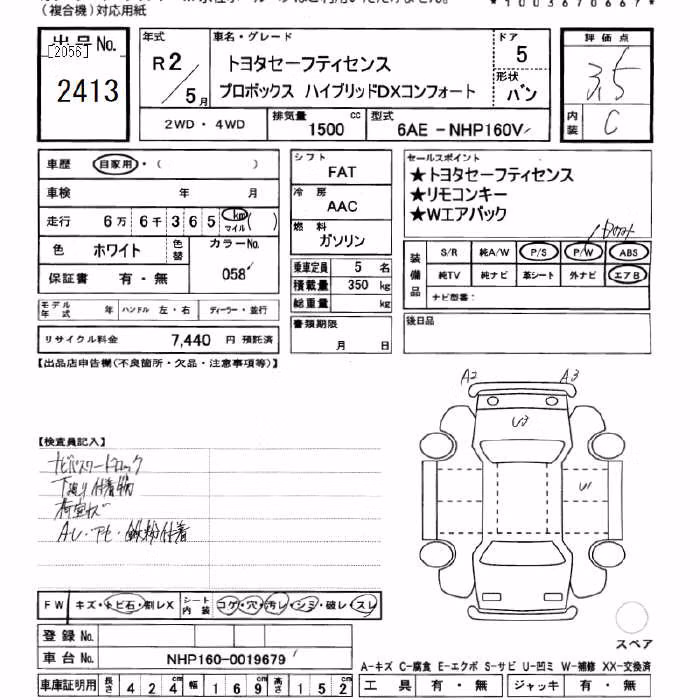 (複合機)対応用紙
*1003670667*
出品No.
[2056]
2413
年式
R2/5月
車名・グレード
トヨタセーフティセンス
プロボックス ハイブリッドDXコンフォート
ドア
5
形状
バン
評価点
3.5
内装
C
2WD・4WD
排気量
1500
cc
型式
6AE-NHP160V
車歴
自家用・( )
車検 年 月
走行 6万 6千 3 6 5 km マイル ( )
色 ホワイト 色替 カラーNo.
058
保証書 有・無
モデル年式 年 ハンドル 左・右 ディーラー・並行
リサイクル料金 7,440 円 預託済
シフト
FAT
冷房
AAC
燃料
ガソリン
乗車定員 5 名
積載量 350 kg
総重量 kg
書類期限
月 日
セールスポイント
★トヨタセーフティセンス
★リモコンキー
★Wエアバック
装備品
S/R 純A/W P/S P/W ABS
純TV 純ナビ 革シート 外ナビ エアB
ナビ型番:
後日品
【出品店申告欄(不良箇所・欠品・注意事項等)】
A2 A3
U3
U1
【検査員記入】
ナビパスワードロック
下廻り付着物
荷室キズ
AU・アセ・鉄粉付着
FW キズ・トビ石・割レX シート内装 コゲ・穴・汚レ・シミ・破レ・スレ
登録No.
車台No. NHP160-0019679
車庫証明用 長さ 424cm 幅 169cm 高さ 152cm
スペア
A-キズ C-腐食 E-エクボ S-サビ U-凹ミ W-補修 XX-交換済
工具 有・無 ジャッキ 有・無